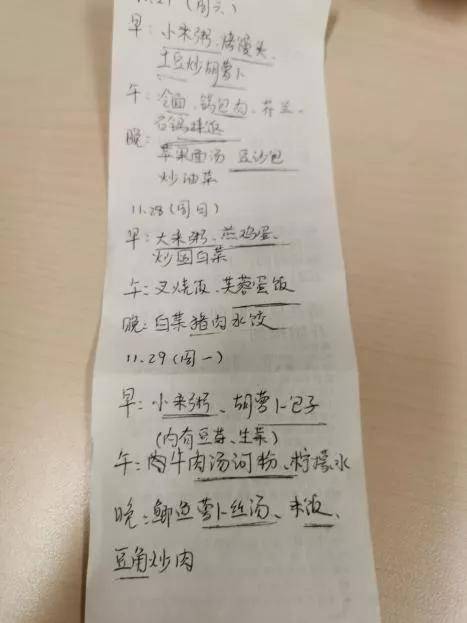 11.27(周六)
早:小米粥、烤馒头、
土豆炒胡萝卜
午:冷面、锅包肉、芥兰、
石锅拌饭
晚:
苹果面汤 豆沙包
炒油菜
11.28(周日)
早:大米粥、煎鸡蛋、
炒圆白菜
午:叉烧饭、芙蓉蛋饭
晚:白菜猪肉水饺
11.29(周一)
早:小米粥、胡萝卜包子
(内有豆芽、生菜)
午:肉牛肉汤河粉、柠檬水
晚:鲫鱼萝卜丝汤、米饭、
豆角炒肉